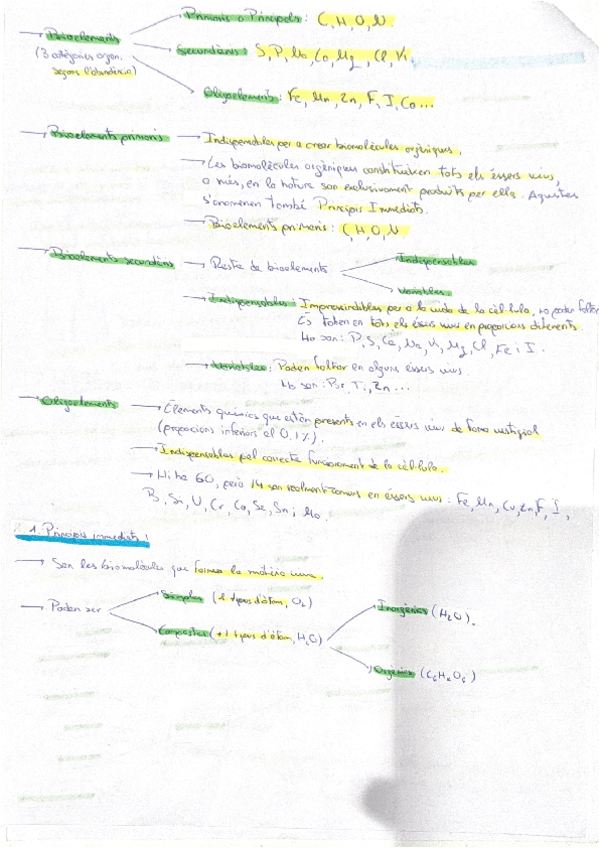 → Bioelements → Primaris o Principals : C, H, O, N
(3 categories segons l'abundància) → Secundaris : S, P, Na, Ca, Mg, Cl, K.
→ Oligoelements : Fe, Mn, Zn, F, I, Co...
→ Bioelements primaris → Indispensables per a crear biomolècules orgàniques.
→ Les biomolècules orgàniques constitueixen tots els éssers vius,
a més, en la natura son exclusivament produïts per ells. Aquestes
s'anomenen també Principis Immediats.
→ Bioelements primaris : C, H, O, N
→ Bioelements secundaris → Resta de bioelements → Indispensables
→ Variables.
→ Indispensables : Imprescindibles per a la vida de la cèl·lula, no poden faltar
Es troben en tots els éssers vius en proporcions diferents.
Ho son : P, S, Ca, Na, K, Mg, Cl, Fe i I.
→ Variables : Poden faltar en alguns éssers vius.
Ho son : Br, Ti, Zn...
→ Oligoelements → Elements químics que estàn presents en els éssers vius de forma vestigial
(proporcions inferiors al 0,1%).
→ Indispensables pel correcte funcionament de la cèl·lula.
→ Hi ha 60, però 14 son realment comuns en éssers vius : Fe, Mn, Cu, Zn, F, I,
B, Si, V, Cr, Co, Se, Sn i Mo.
1. Principis immediats :
→ Son les biomolècules que formen la matèria viva.
→ Poden ser → Simples (1 tipus d'àtom, O₂)
→ Compostes (+1 tipus d'àtom, H₂O) → Inorgànics (H₂O).
→ Orgànics (C₆H₁₂O₆)